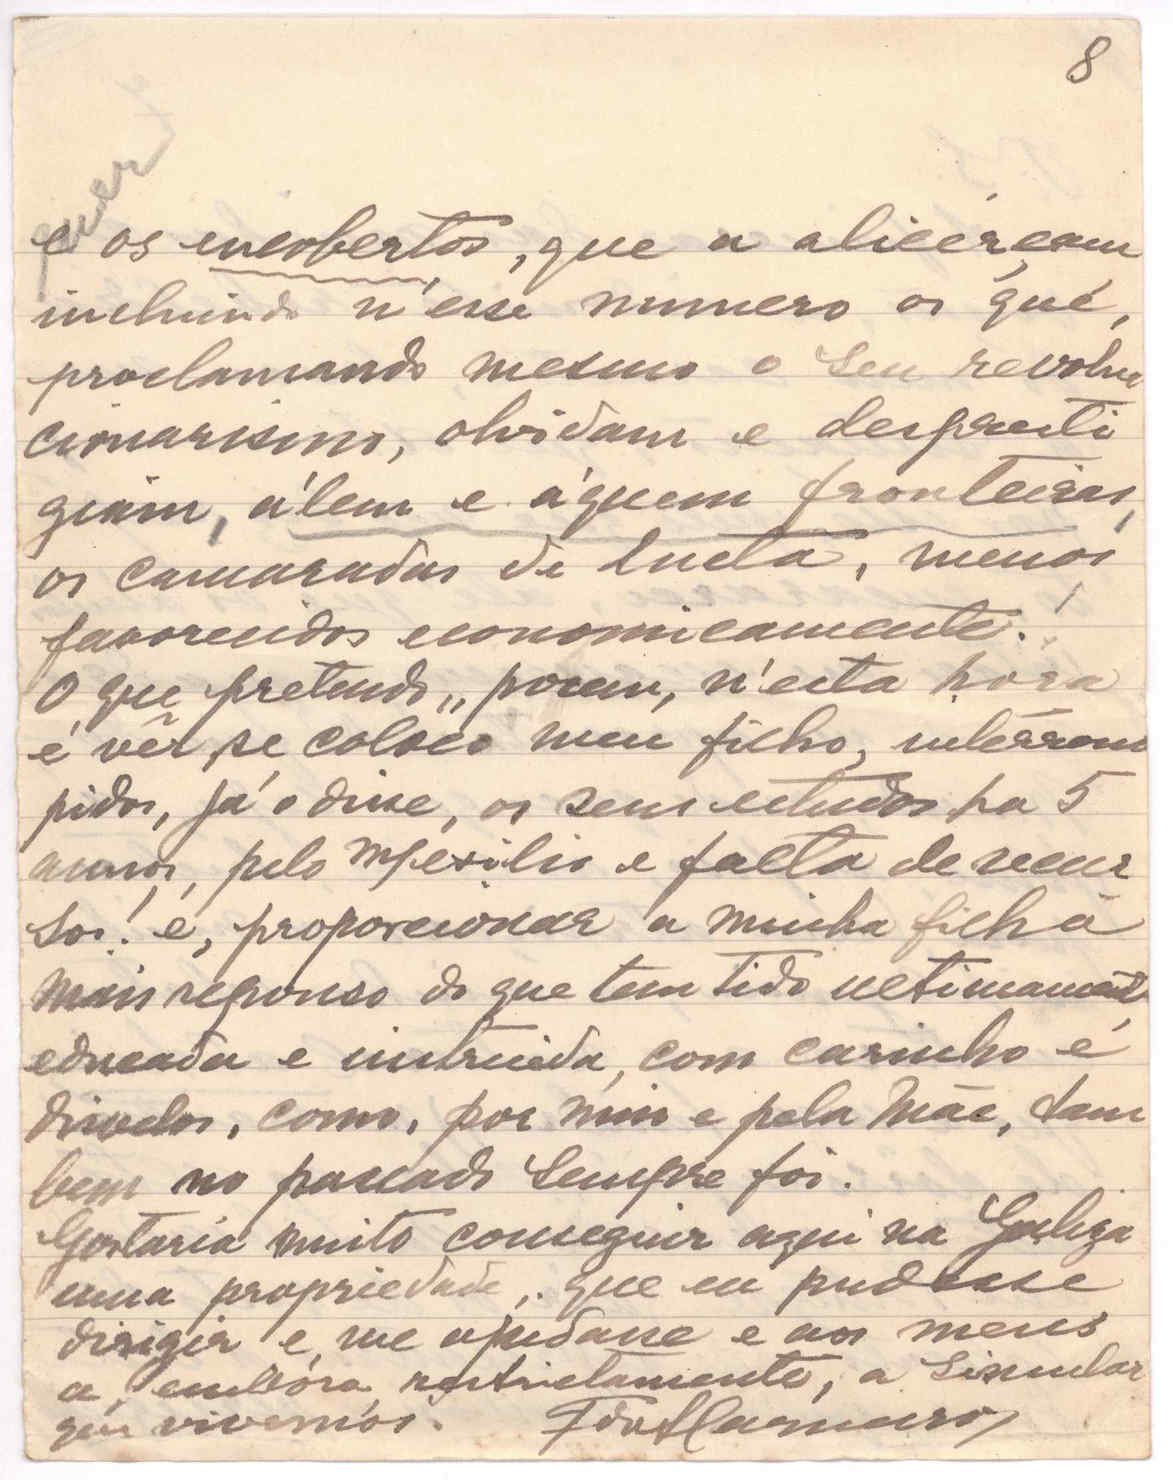 8
e os encobertos, que a alicérçam
incluindo n'esse numero os qué,
proclamando mesmo o seu revolu
cionarismo, olvidam e despresti
giam, álem e áquem fronteiras,
os camaradas de lucta, menos
favorecidos economicamente!
O que pretendo, porem, n'esta hora
é vêr se coloco meu filho, intérrom
pidos, já o disse, os seus estudos ha 5
annos, pelo exilio e falta de recur
sos! e, proporcionar a minha filha
mais repouso do que tem tido ultimamente
educada e instruida, com carinho é
disvelos, como, por mim e pela Mãe, tam
bem no passado sempre foi.
Gostaria muito conseguir aqui na Galiza
uma propriedade, que eu pudesse
dirigir e, me ajudasse e aos meus
a, embóra restrictamente, a simular
que vivemos.